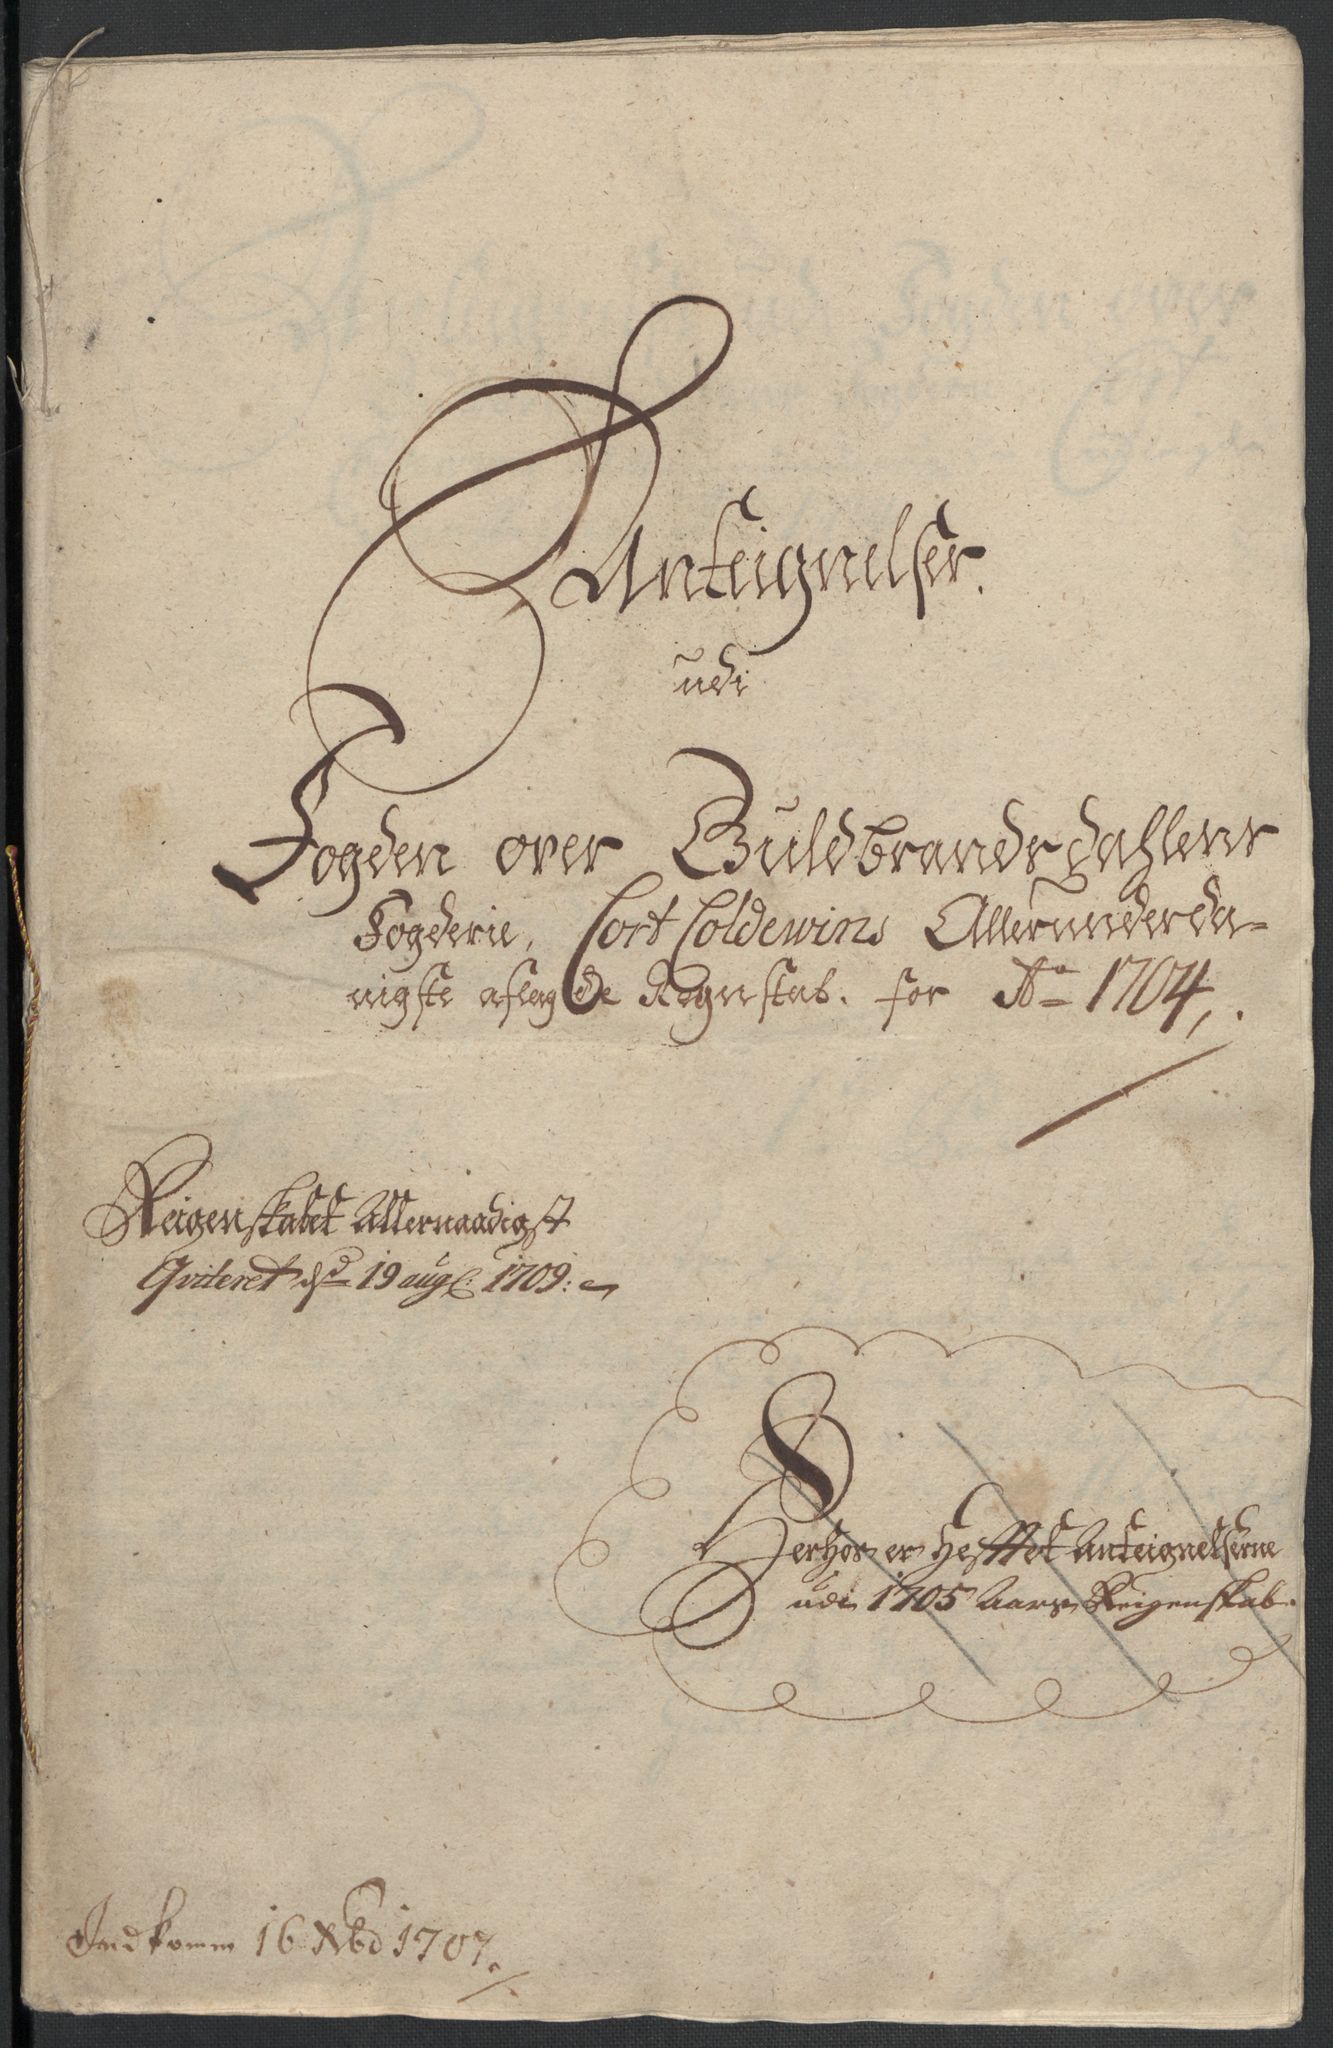 Anteignelser.
udi
Fogden over Guldbrandsdahlens
Fogderie, Cort Coldewins Allerunderda-
nigste aflagde Regnskab. for Ao 1704,.
Reigenskabet Allernaadigst
Qviteret dend 19 aug: 1709:
Herhos er Hefftet Anteignelserne
udi 1705 Aars Reigenskab.
Indkomm 16 Xbr 1707.